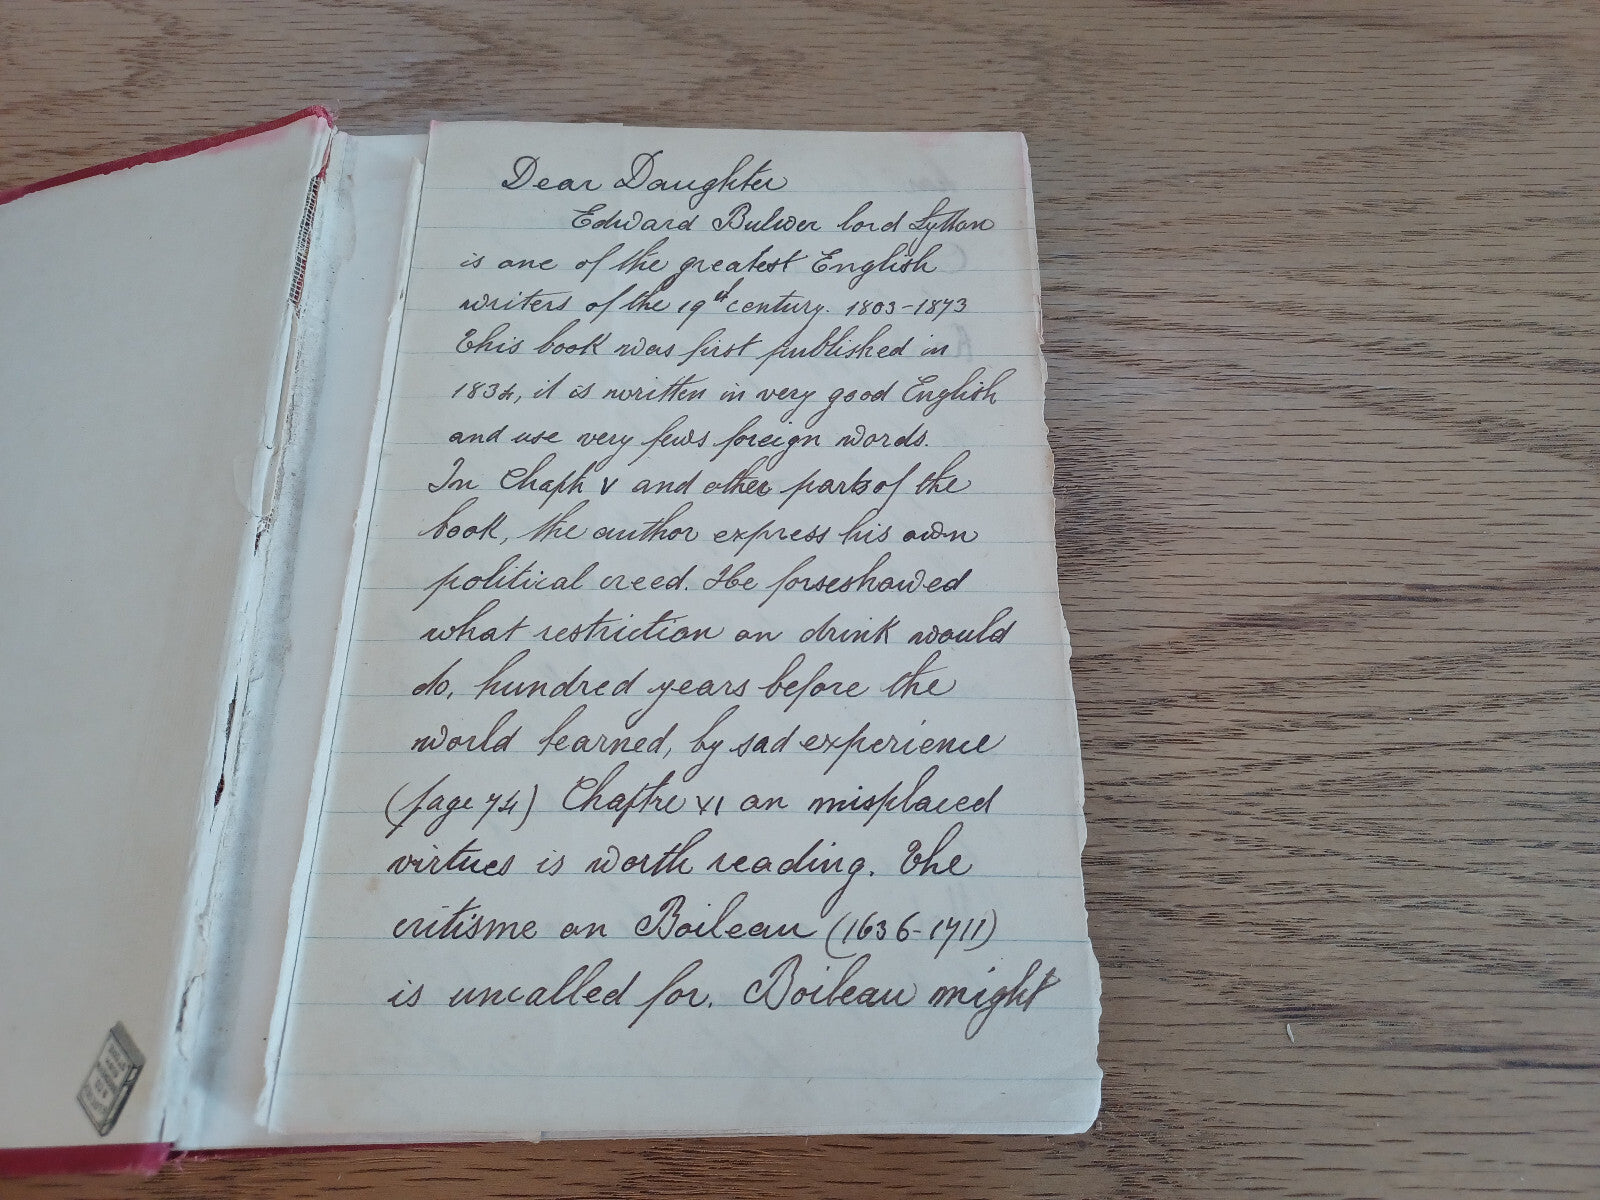 Dear Daughter
Edward Bulwer lord Lytton
is one of the greatest English
writers of the 19th century. 1803-1873
This book was first published in
1834, it is written in very good English
and use very fews foreign words.
In Chapt V and other parts of the
book, the author express his own
political creed. He forseshawed
what restriction on drink would
do, hundred years before the
world learned, by sad experience
(page 74) Chaptre XI on misplaced
virtues is worth reading. The
critisme on Boileau (1636-1711)
is uncalled for. Boileau might